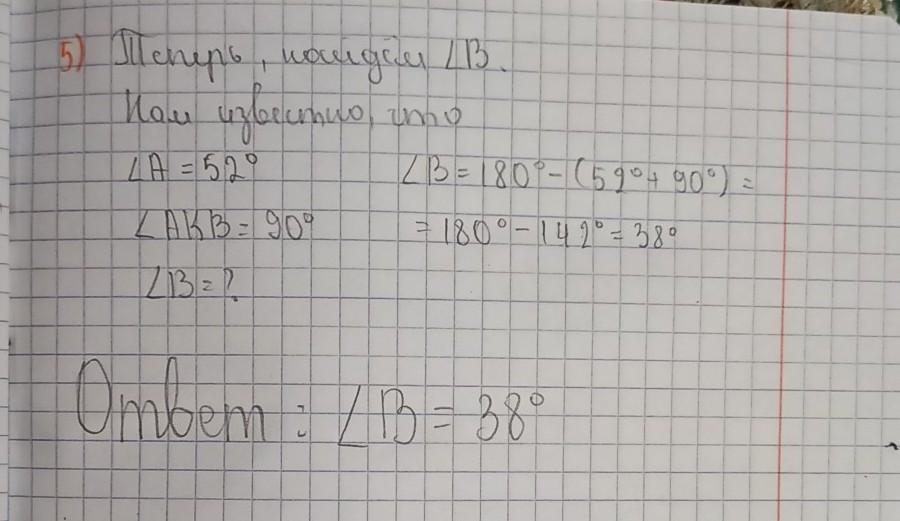 5) Теперь, найдём ∠B.
Нам известно, что
∠A = 52° ∠B = 180° - (52° + 90°) =
∠AKB = 90° = 180° - 142° = 38°
∠B = ?
Ответ: ∠B = 38°